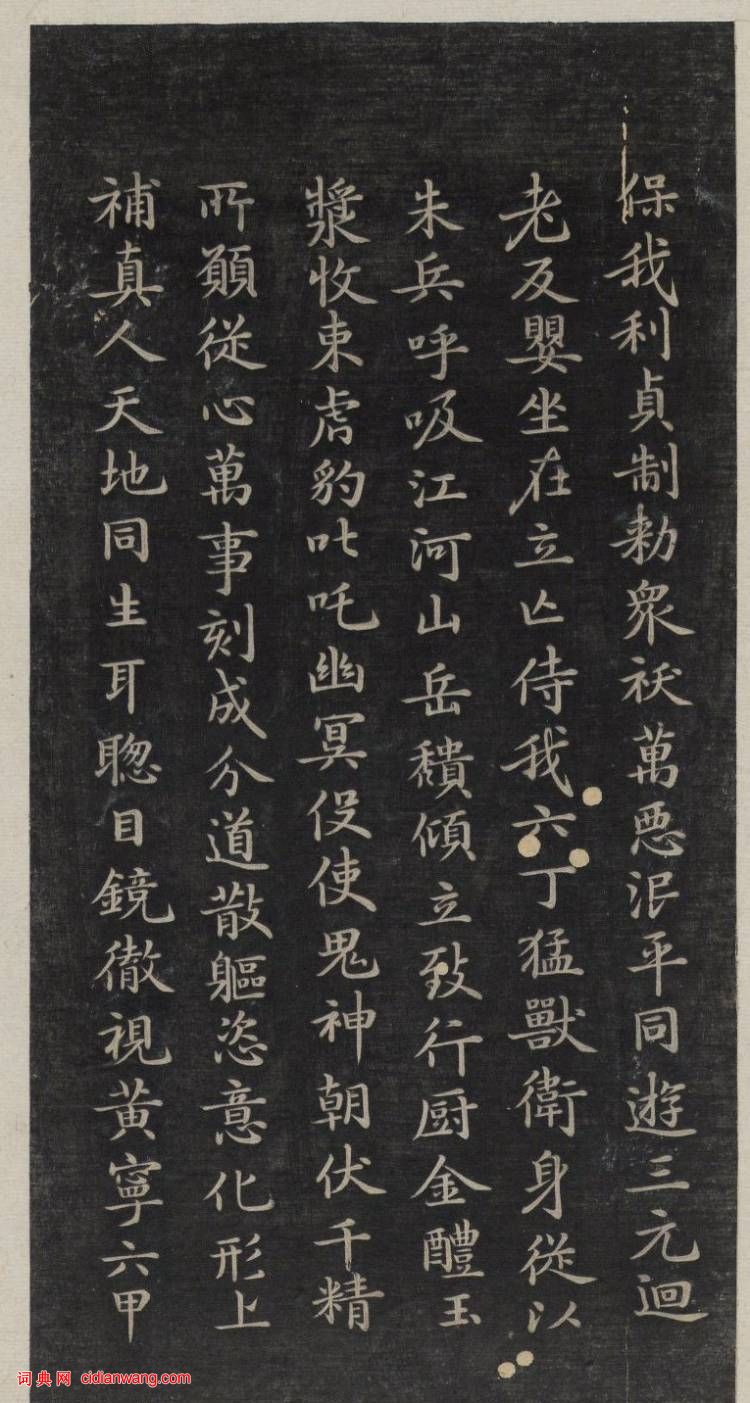 保我利貞制勑衆祅萬惡泯平同遊三元迴
老反嬰坐在立亡侍我六丁猛獸衛身從以
朱兵呼吸江河山岳穨傾立致行厨金醴玉
漿收束虎豹叱吒幽冥役使鬼神朝伏千精
所願從心萬事刻成分道散軀恣意化形上
補真人天地同生耳聦目鏡徹視黄寧六甲
词典网 cidianwang.com